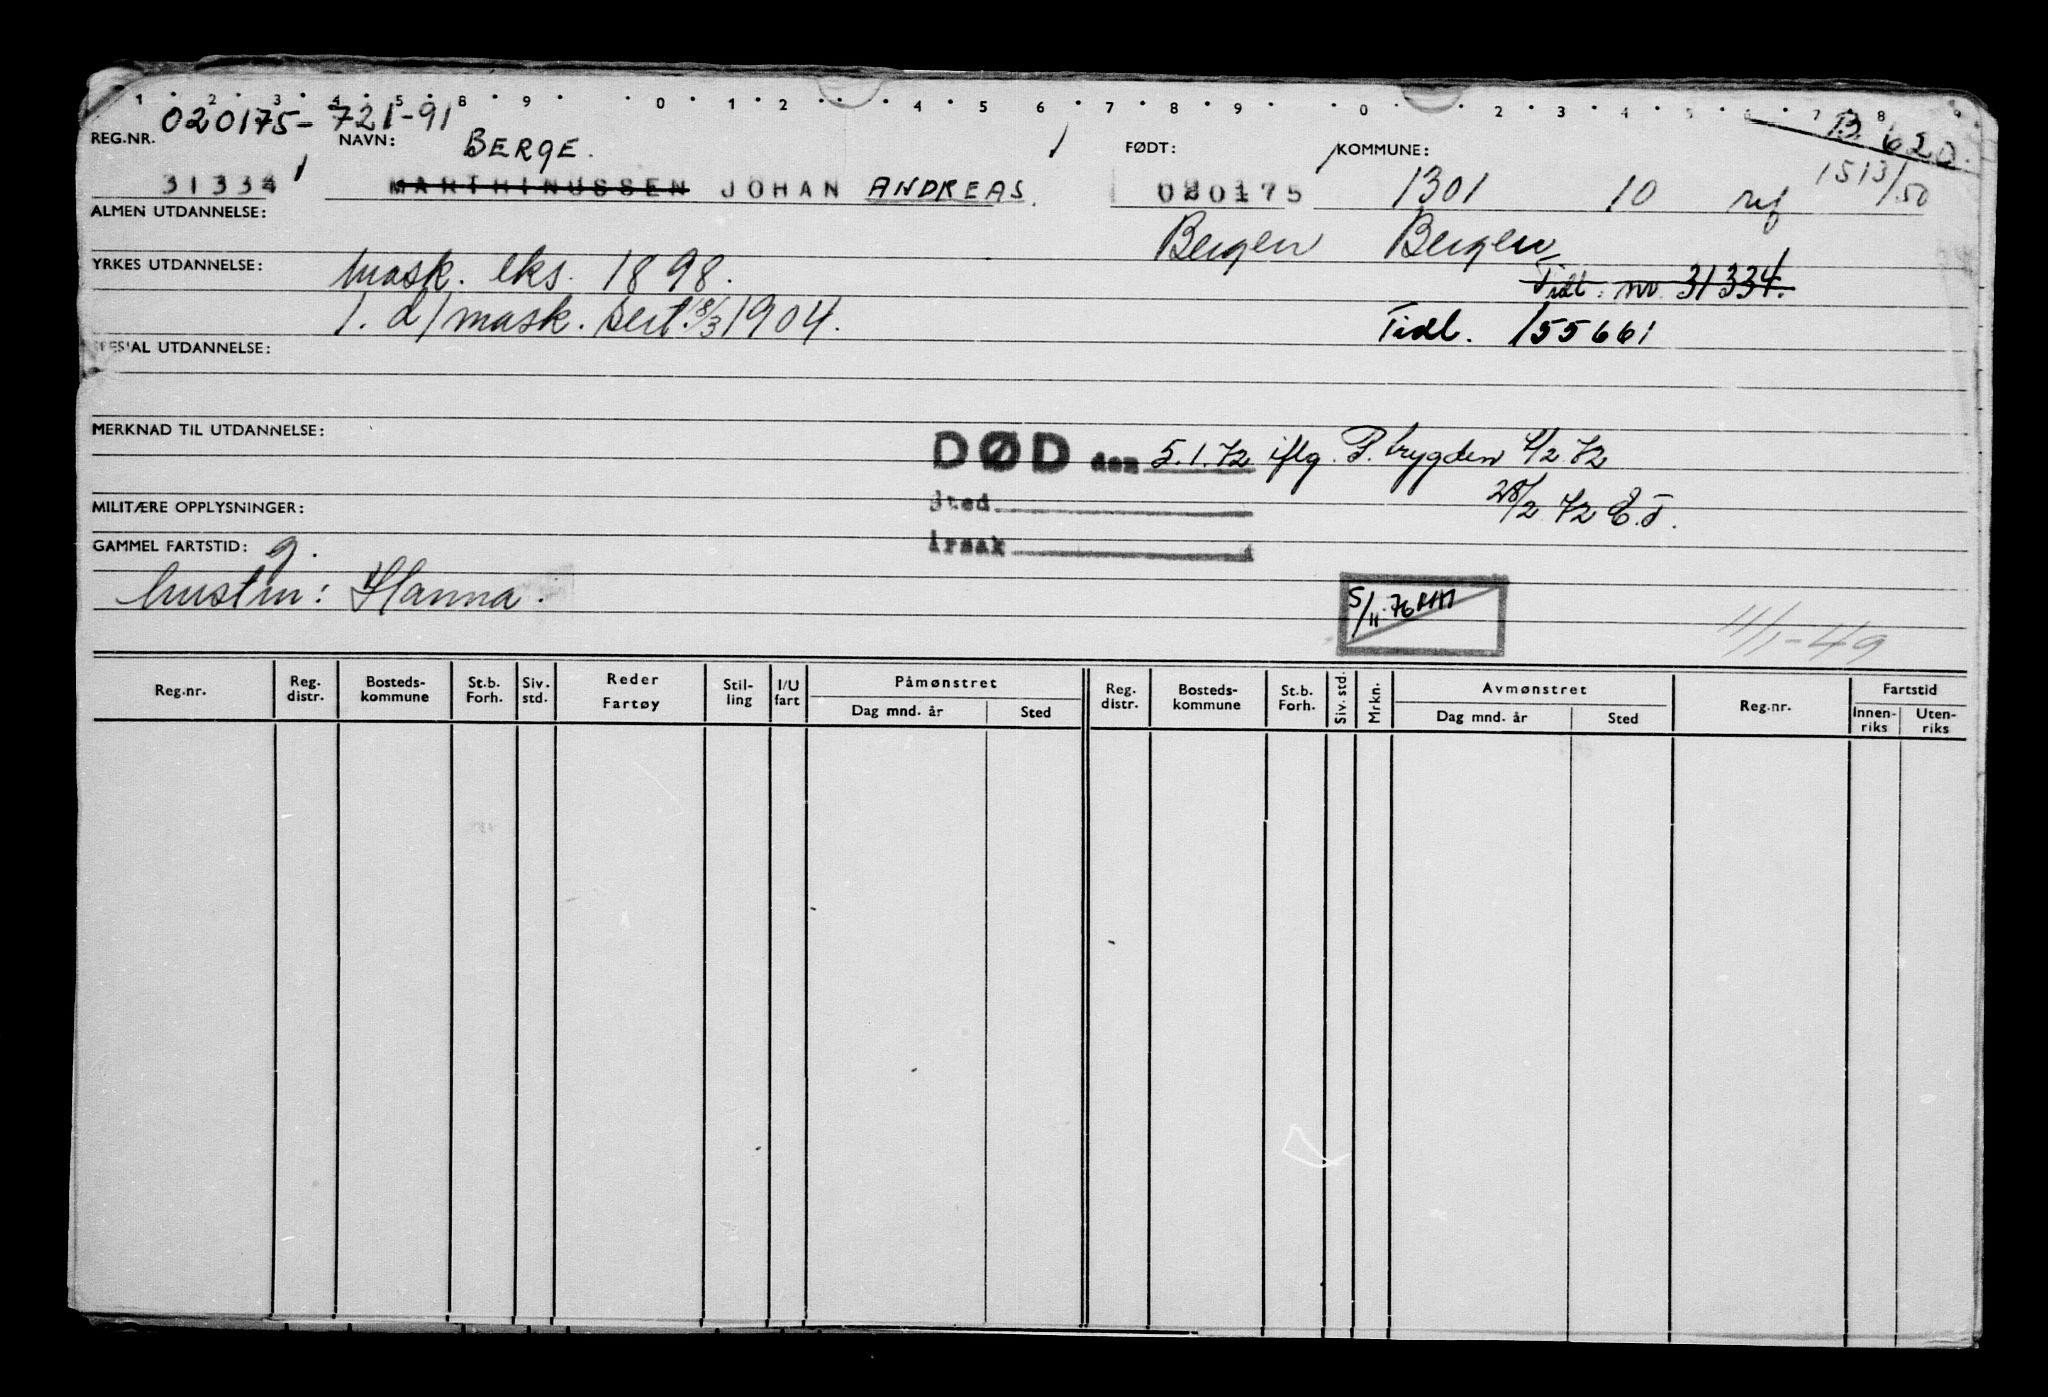 1 2 3 4 5 8 9 0 1 2 4 5 6 7 8 9 0 2 3 4 5 6 7 8 9
020175-721-91
B. 620.
REG.NR. NAVN: BERGE. FØDT: KOMMUNE:
31334 MARTHINUSSEN JOHAN ANDREAS. 020175 1301 10 1513/50
ALMEN UTDANNELSE:
Bergen Bergen
YRKES UTDANNELSE: mask. eks. 1898.
Tidl. nr. 31334.
1. d/mask. sert. 18/3 1904.
Tidl. 155661
SPESIAL UTDANNELSE:
MERKNAD TIL UTDANNELSE:
DØD den 5.1.72 iflg. P. trygden 4/2 72
MILITÆRE OPPLYSNINGER:
Sted
28/2 72 E.T.
GAMMEL FARTSTID: g.
årsak
hustru: Hanna.
5/11.76
11/1-49
Reg.nr. Reg. distr. Bosteds-kommune St.b. Forh. Siv. std. Reder Fartøy Stil-ling I/U fart Påmønstret Dag mnd. år Sted Reg. distr. Bosteds-kommune St.b. Forh. Siv. std. Mrkn. Avmønstret Dag mnd. år Sted Reg.nr. Fartstid Innen-riks Uten-riks